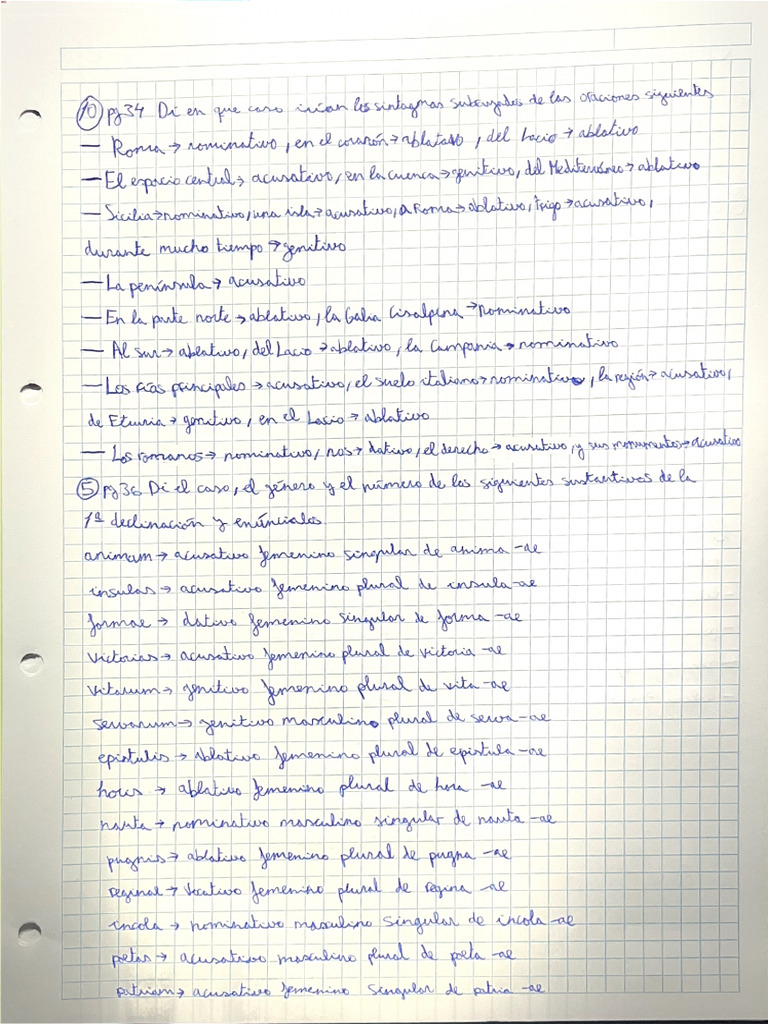 10 pg34 Di en que caso irían los sintagmas subrayados de las oraciones siguientes
— Roma → nominativo, en el corazón → ablativo, del Lacio → ablativo
— El espacio central → acusativo, en la cuenca → genitivo, del Mediterráneo → ablativo
— Sicilia → nominativo, una isla → acusativo, a Roma → ablativo, trigo → acusativo,
durante mucho tiempo → genitivo
— La península → acusativo
— En la parte norte → ablativo, la Galia Cisalpina → nominativo
— Al sur → ablativo, del Lacio → ablativo, la Campania → nominativo
— Los ríos principales → acusativo, el suelo italiano → nominativo, la región → acusativo,
de Etruria → genitivo, en el Lacio → ablativo
— Los romanos → nominativo, nos → dativo, el derecho → acusativo, y sus monumentos → acusativo
5 pg36 Di el caso, el género y el número de los siguientes sustantivos de la
1ª declinación y enúncialos.
animam → acusativo femenino singular de anima -ae
insulas → acusativo femenino plural de insula -ae
formae → dativo femenino singular de forma -ae
victorias → acusativo femenino plural de victoria -ae
vitarum → genitivo femenino plural de vita -ae
servarum → genitivo masculino plural de serva -ae
epistulis → ablativo femenino plural de epistula -ae
horis → ablativo femenino plural de hora -ae
nauta → nominativo masculino singular de nauta -ae
pugnis → ablativo femenino plural de pugna -ae
→ vocativo femenino plural de regina -ae
incola → nominativo masculino singular de incola -ae
poetas → acusativo masculino plural de poeta -ae
patriam → acusativo femenino singular de patria -ae